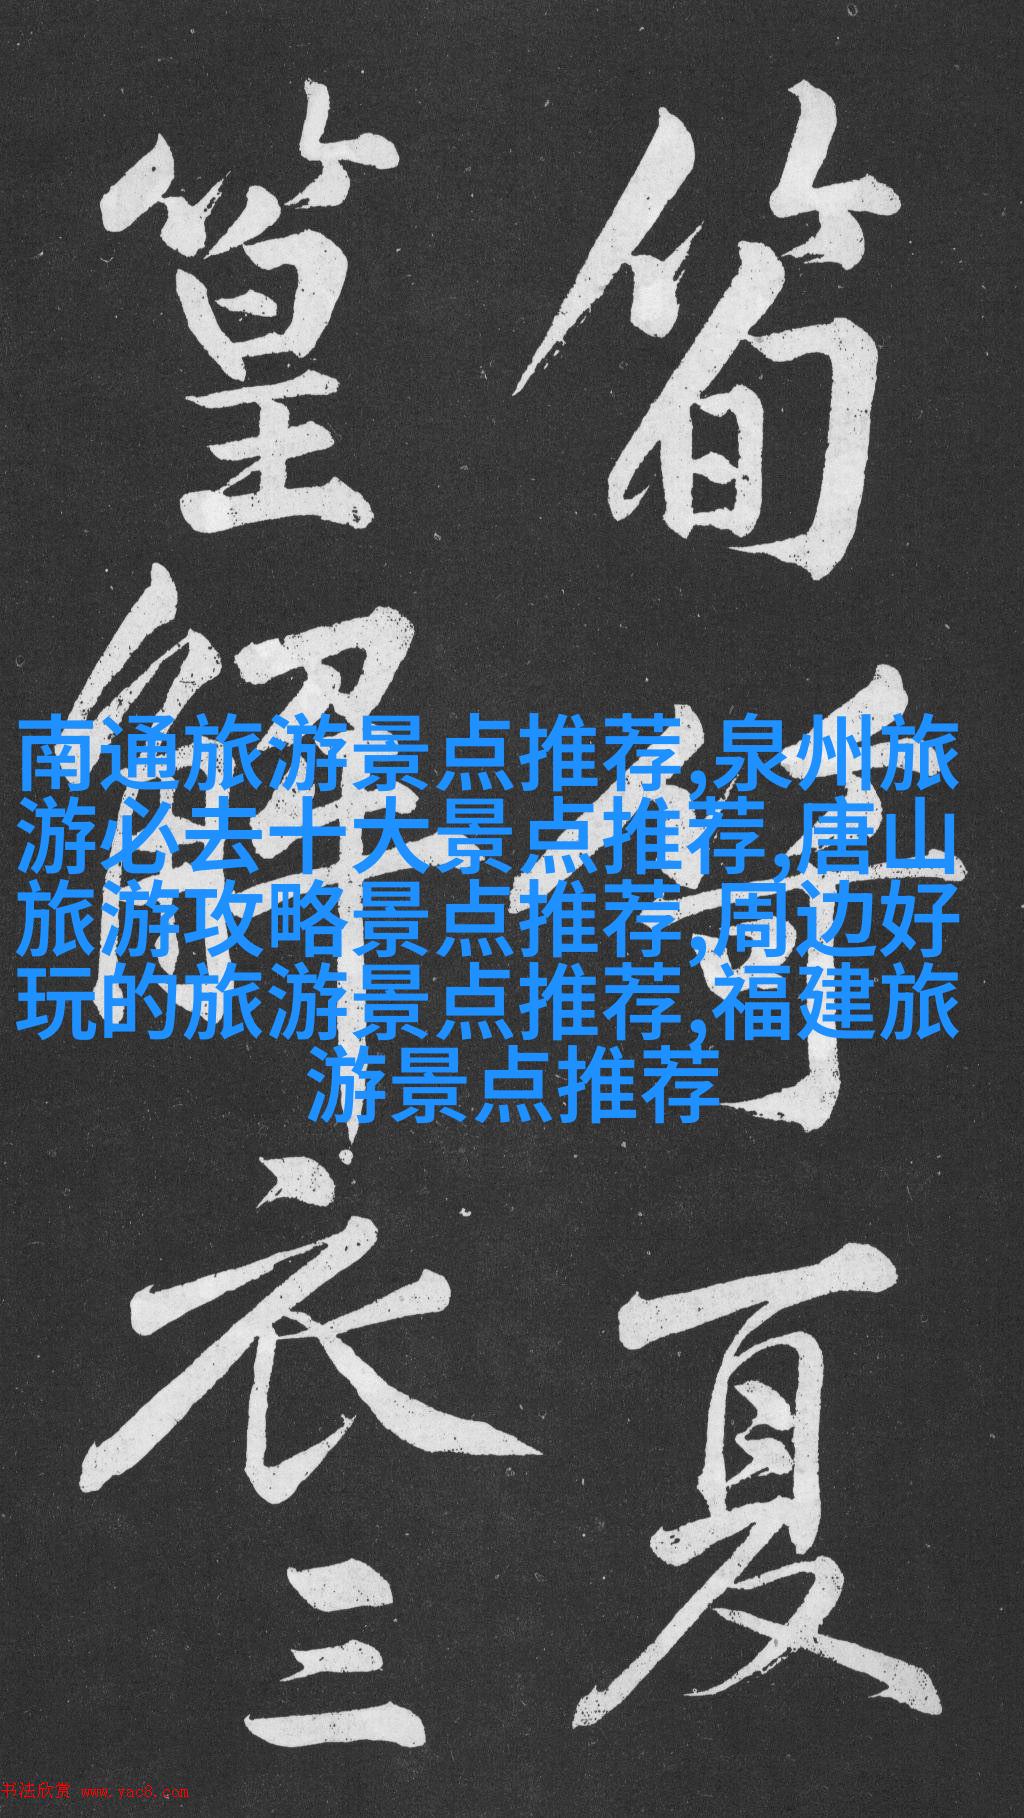 筍
夏
篁解衣三
南通旅游景点推荐,泉州旅
游必去十大景点推荐,唐山
旅游攻略景点推荐,周边好
玩的旅游景点推荐,福建旅
游景点推荐
书法欣赏 www.yac8.com